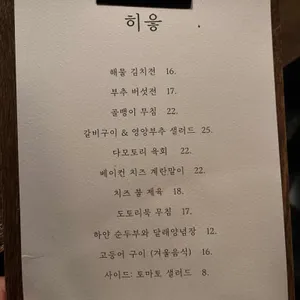 히읗 .
해물 김치전 16.
부추 버섯전 17.
골뱅이 무침 22.
갈비구이 & 영양부추 샐러드 25.
다모토리 육회 22.
베이컨 치즈 계란말이 22.
치즈 불 제육 18.
도토리묵 무침 17.
하얀 순두부와 달래양념장 12.
고등어 구이 (겨울음식) 16.
사이드: 토마토 샐러드 8.